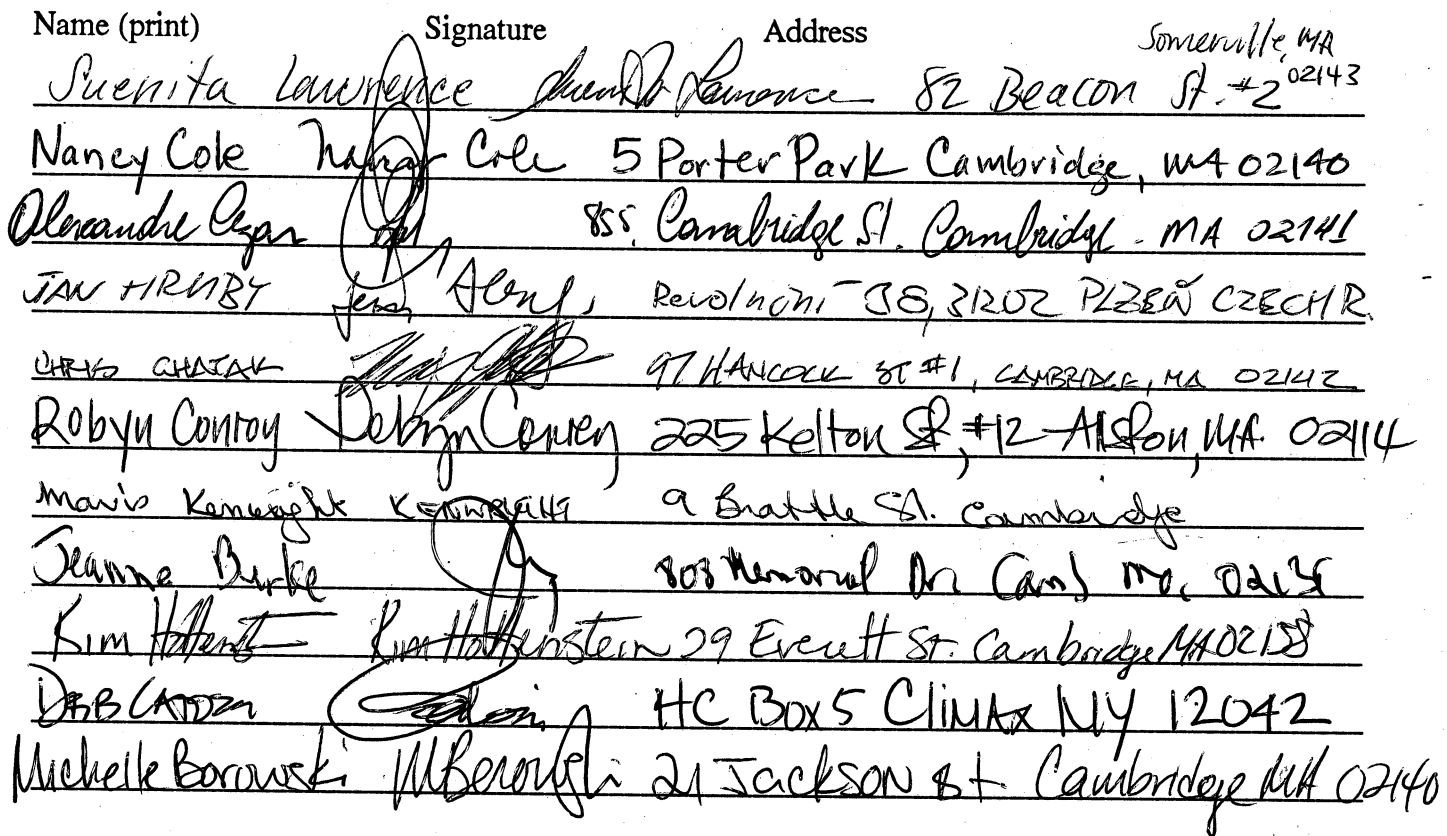 Name (print) Signature Address
Somerville, MA
Suenita Lawrence Lawrence 82 Beacon St. #2 02143
Nancy Cole Nancy Cole 5 Porter Park Cambridge, MA 02140
Alexandre 855 Cambridge St. Cambridge - MA 02141
JAN HRUBY 38, 31202 PLZEŇ CZECH R.
CHRIS GHATAK 97 HANCOCK ST #1, CAMBRIDGE, MA 02142
Robyn Conroy Robyn Conroy 225 Kelton St, #12 Allston, MA. 02114
Mavis Kenwright KENWRIGHT 9 Brattle St. Cambridge
Jeanne Burke 808 Memorial Dr. Camb
Kim Kim Hottenstein 29 Everett St. Cambridge MA 02138
DEB HC Box 5 CLiMAx NY 12042
Michelle Borowski M Borowski 21 Jackson St Cambridge MA 02140